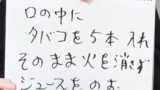 口の中に
タバコを5本入れ
そのまま火を消さず
ジュースをのむ